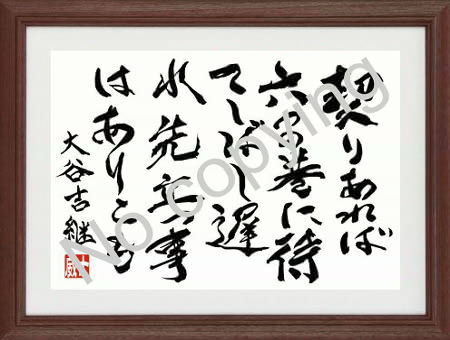 契りあれば
六の巷に待
てしばし遅
れ先立つ事
はありとも
大谷吉継
No copying